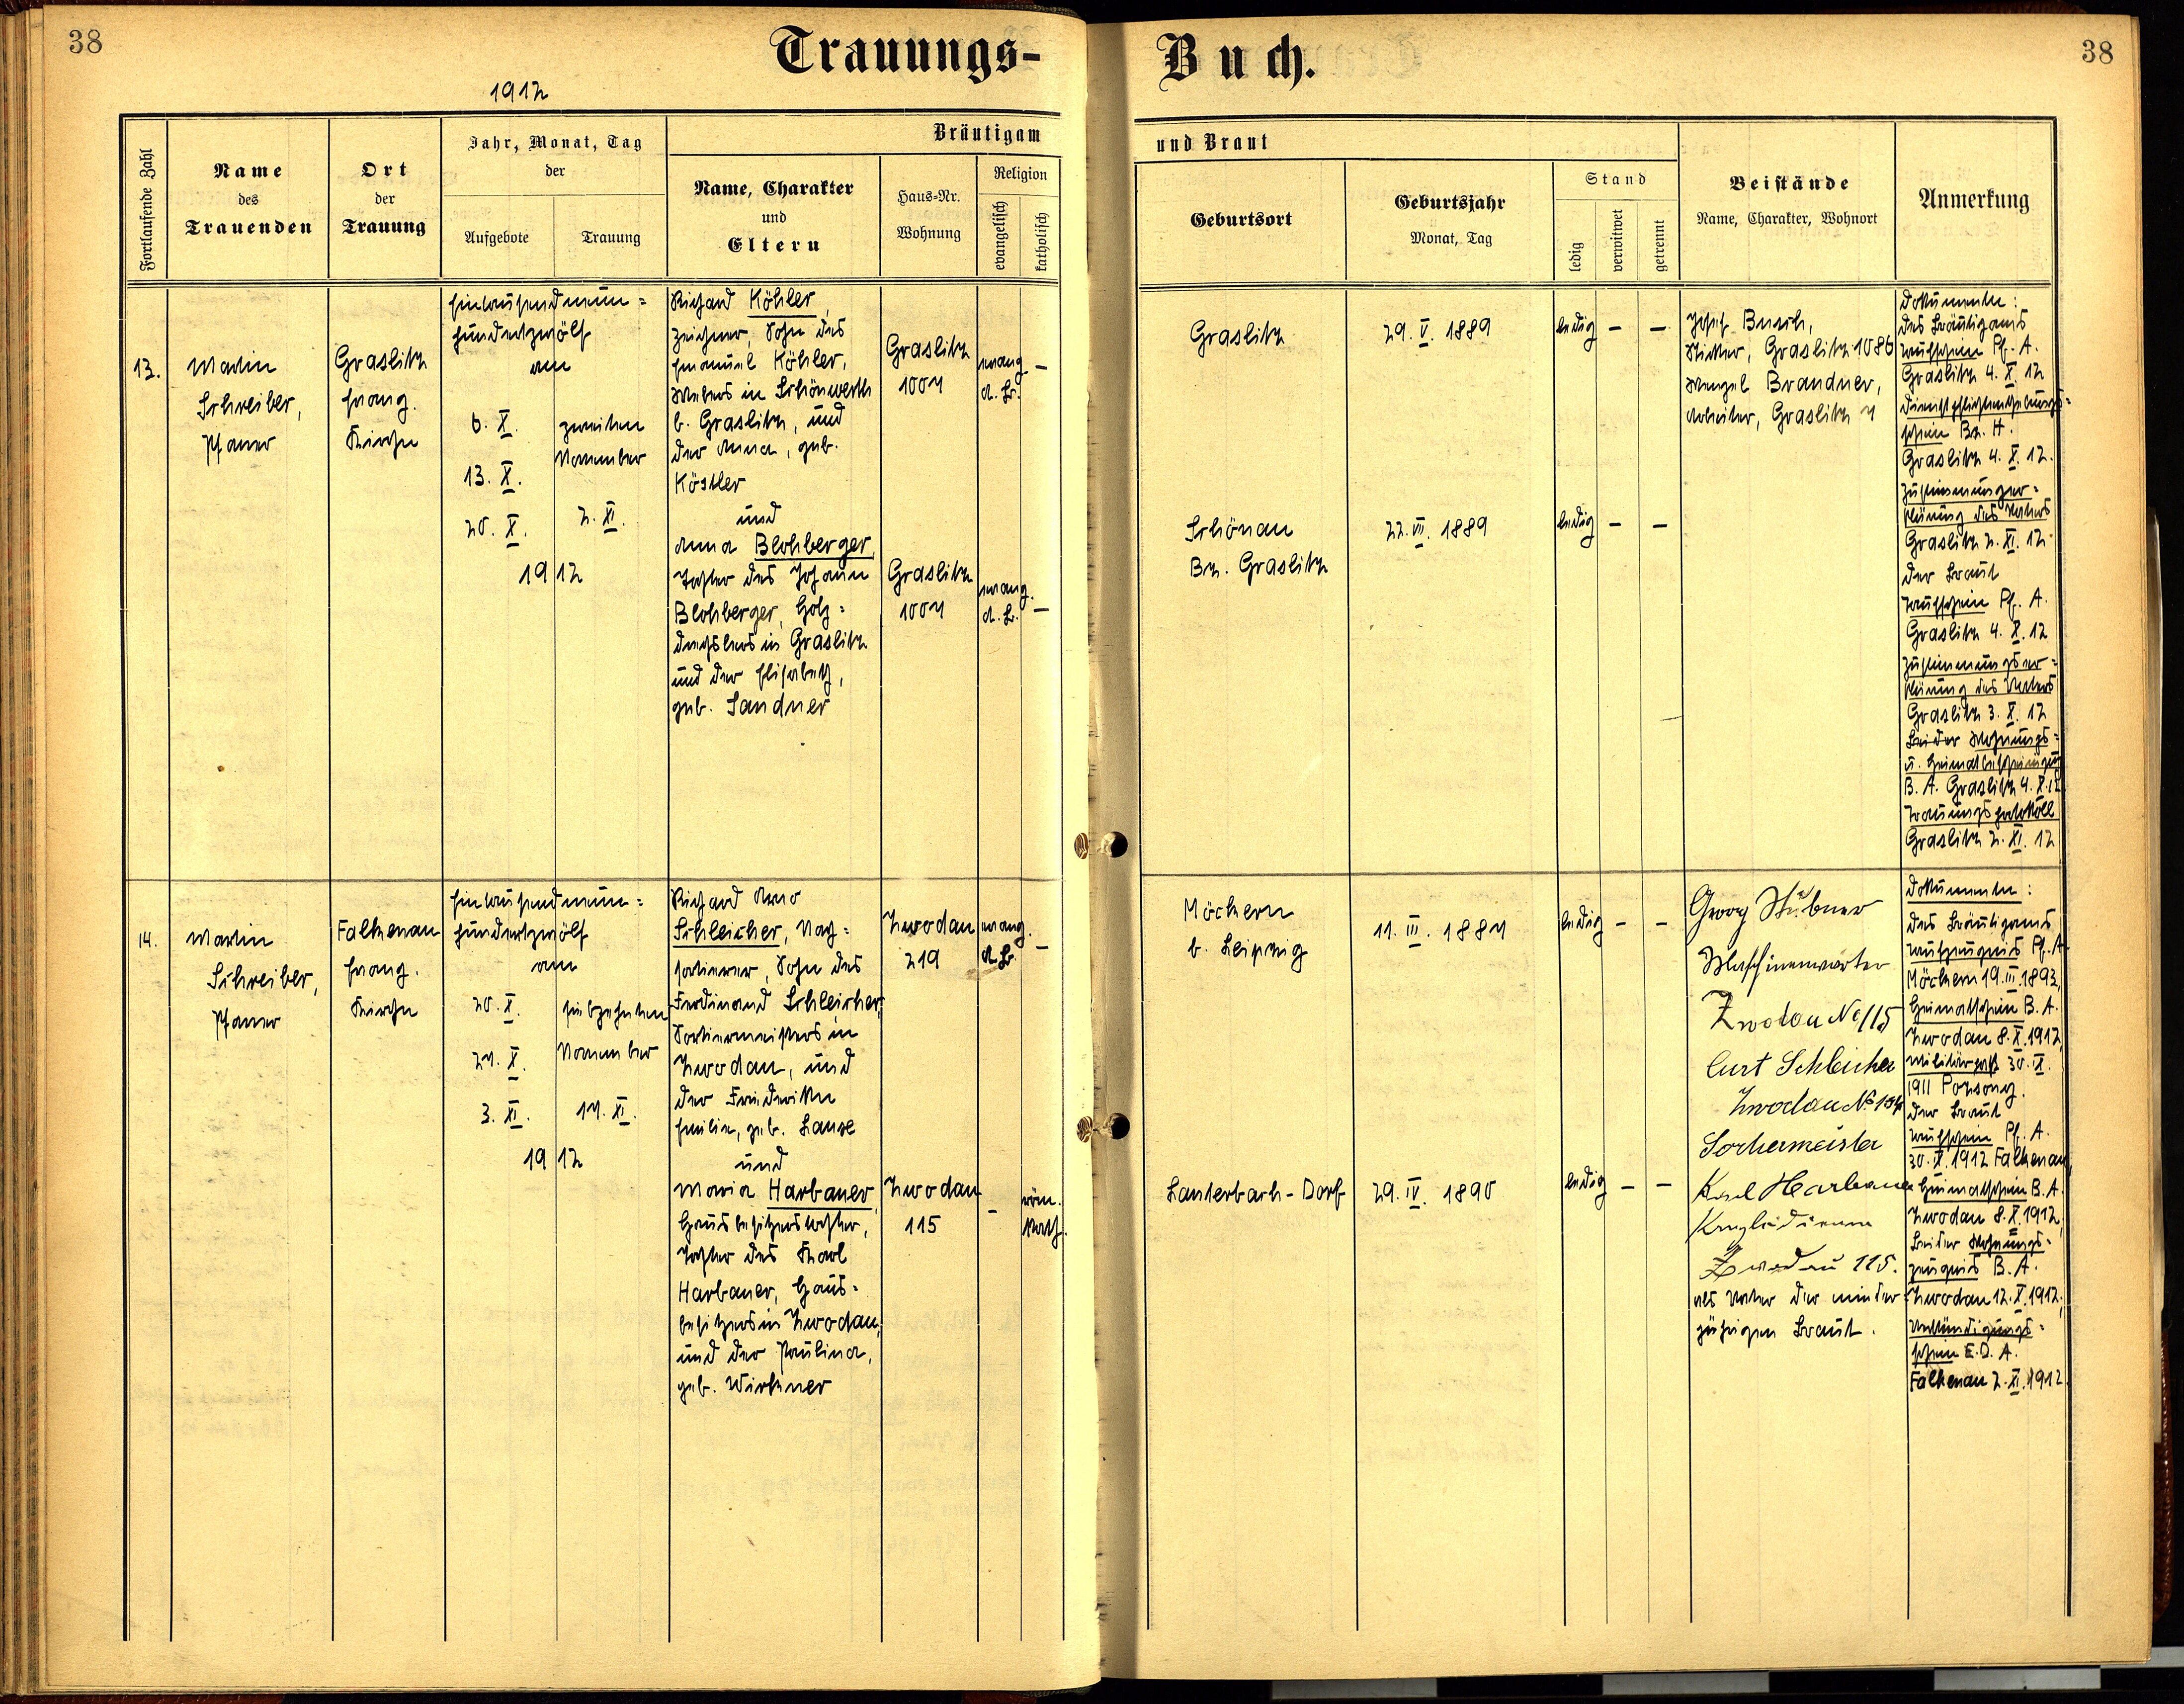 38
Trauungs-
Buch.
38
1912
Fortlaufende Zahl
Name
des
Trauenden
Ort
der
Trauung
Jahr, Monat, Tag
der
Aufgebote
Trauung
Bräutigam
Name, Charakter
und
Eltern
Haus-Nr.
Wohnung
Religion
evangelisch
katholisch
und Braut
Geburtsort
Geburtsjahr
Monat, Tag
Stand
ledig
verwitwet
getrennt
Beistände
Name, Charakter, Wohnort
Anmerkung
13.
Martin
Schreiber,
Pfarrer
Graslitz
Evang.
Kirche
Eintausendneun=
hundertzwölf
am
6. X.
13. X.
20. X.
zweiten
November
2. XI.
1912
Richard Köhler,
Zeichner, Sohn des
Emanuel Köhler,
Webers in Schönwerth
b. Graslitz, und
der Anna, geb.
Köstler
und
Anna Blohberger,
Tochter des Johann
Blohberger, Holz=
drechslers in Graslitz
und der Elisabeth,
geb. Sandner
Graslitz
1007
evang.
A. B.
–
Graslitz
1007
evang.
A. B.
–
Graslitz
29. V. 1889
ledig – –
Schönau
Bz. Graslitz
22. VII. 1889
ledig – –
Josef Busch,
Sticker, Graslitz 1086
Wenzel Brandner,
Arbeiter, Graslitz 7
Dokumente:
des Bräutigams
Taufschein Pf. A.
Graslitz 4. X. 12
schein Bz. H.
Graslitz 4. X. 12.
Zustimmungser=
klärung des Vaters
Graslitz 2. XI. 12
der Braut
Taufschein Pf. A.
Graslitz 4. X. 12
Zustimmungser=
klärung des Vaters
Graslitz 3. X. 12
Beider Wohnungs=
u. Heimatbescheinigung
B. A. Graslitz 4. X. 12
Trauungsprotokoll
Graslitz 2. XI. 12
14.
Martin
Schreiber,
Pfarrer
Falkenau
Evang.
Kirche
Eintausendneun=
hundertzwölf
am
20. X.
27. X.
3. XI.
siebzehnten
November
17. XI.
1912
Richard Arno
Schleicher, Nach=
sortierer, Sohn des
Ferdinand Schleicher,
Sortiermeisters in
Zwodau, und
der Friederike
Emilie, geb. Lange
und
Maria Harbauer,
Hausbesitzerstochter,
Tochter des Karl
Harbauer, Haus=
besitzers in Zwodau,
und der Paulina,
geb. Wirkner
Zwodau
219
evang.
A. B.
–
Zwodau
115
–
röm.
kath.
Möckern
b. Leipzig
11. III. 1887
ledig – –
Lauterbach-Dorf
29. IV. 1890
ledig – –
Georg Stübner
Maschinenwärter
Zwodau No 115
Curt Schleicher
Zwodau No
Sortiermeister
Karl Harbauer
Kanzleidiener
Zwodau 115.
als Vater der minder=
jährigen Braut.
Dokumente:
des Bräutigams
Taufzeugnis Pf. A.
Möckern 19. III. 1893,
Heimatschein B. A.
Zwodau 8. X. 1912,
Militärpaß 30. IX.
1911 Pozsony.
der Braut
Taufschein Pf. A.
30. IX. 1912 Falkenau,
Heimatschein B. A.
Zwodau 8. X. 1912,
Beider Wohnungs=
zeugnis B. A.
Zwodau 12. X. 1912,
Verkündigungs=
schein E. D. A.
Falkenau 2. XI. 1912.